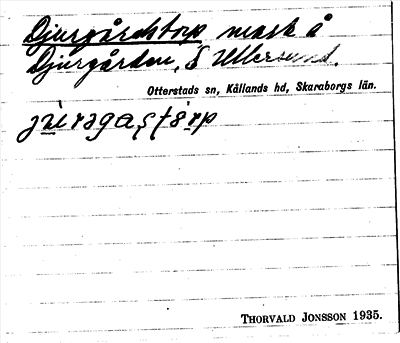 Djurgårdstorp mark å
Djurgården, S Ullersund.
Otterstads sn, Kållands hd, Skaraborgs län.
THORVALD JONSSON 1935.